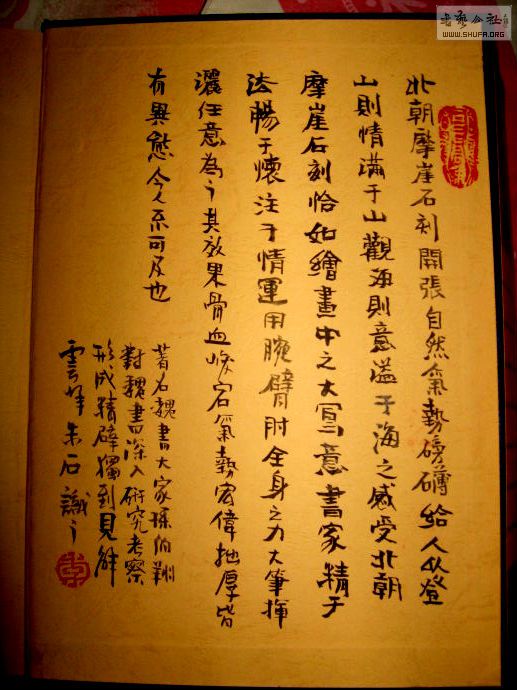 北朝摩崖石刻開張自然氣勢磅礴給人以登
山則情滿于山觀海則意溢于海之感受北朝
摩崖石刻恰如繪畫中之大寫意書家精于
法暢于懷注于情運用腕臂肘全身之力大筆揮
灑任意為之其效果骨血峻宕氣勢宏偉拙厚皆
有異愈今人不可及也
著名魏書大家孫伯翔
對魏書深入研究考察
形成精辟獨到見解
雲峰朱石識之
書藝公社
WWW.SHUFA.ORG